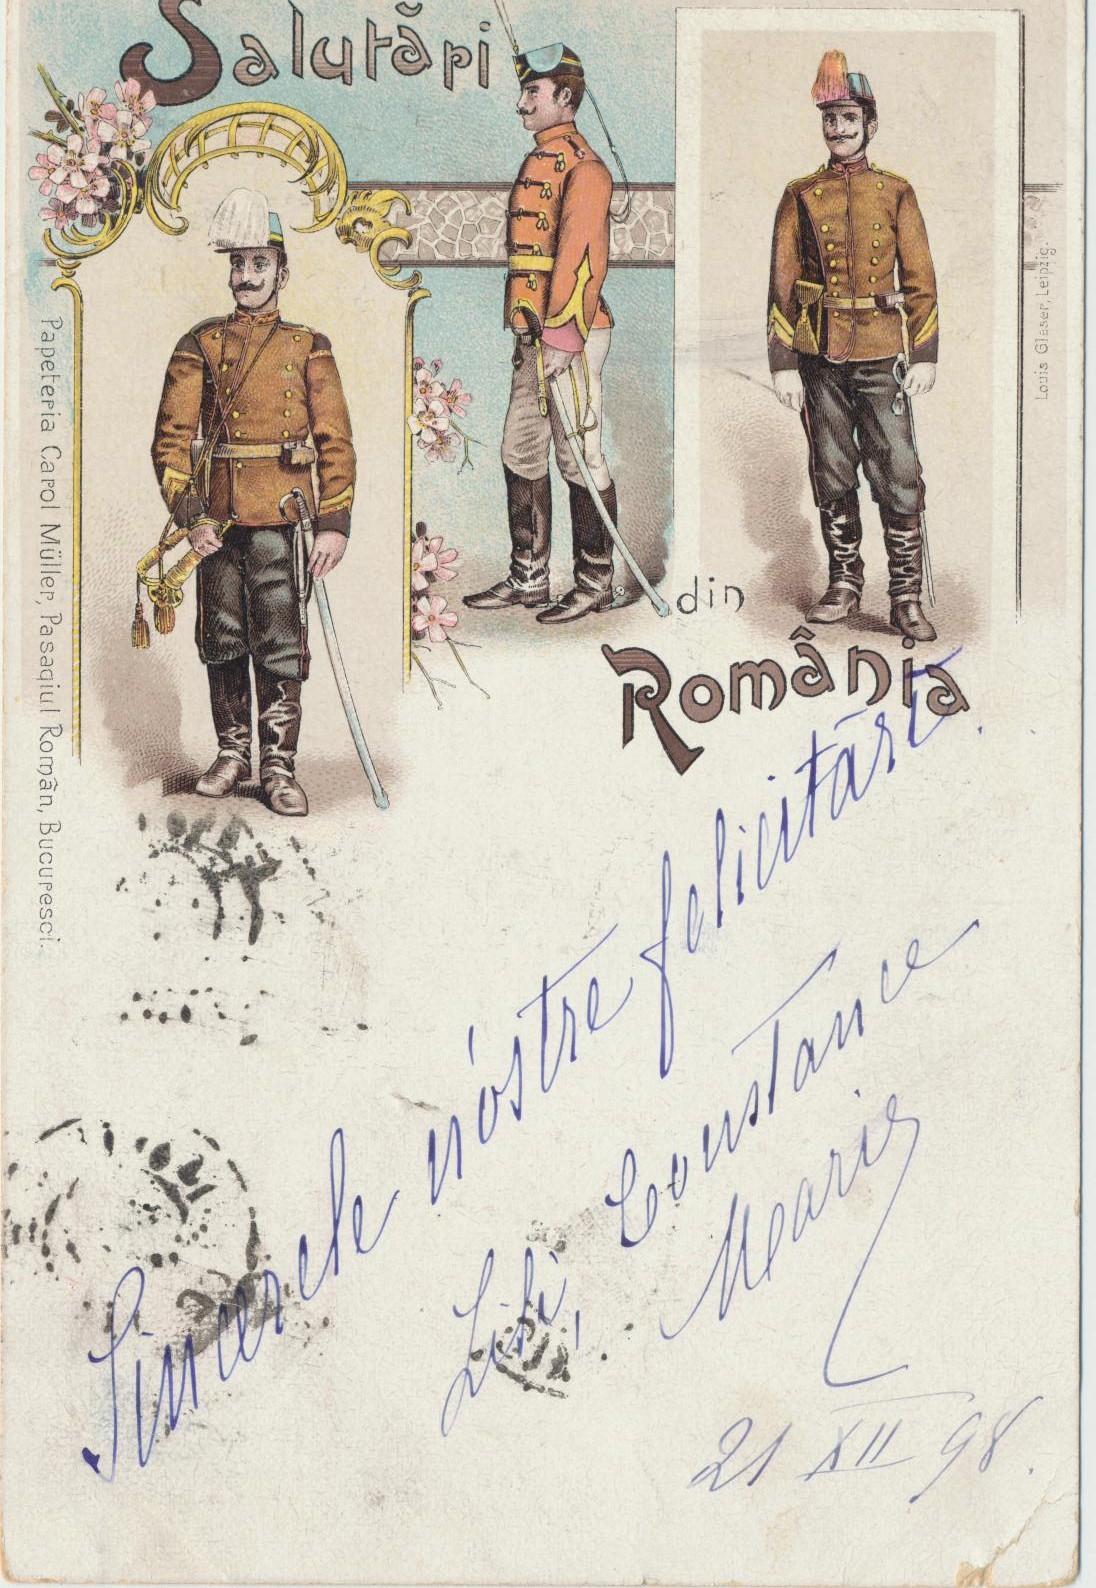 Salutări
din
România
Papeteria Carol Müller, Pasagiul Român, Bucuresci.
Louis Glaser, Leipzig.
Sincerele nóstre felicitări.
Lili, Constance
Marie
21 XII 98.